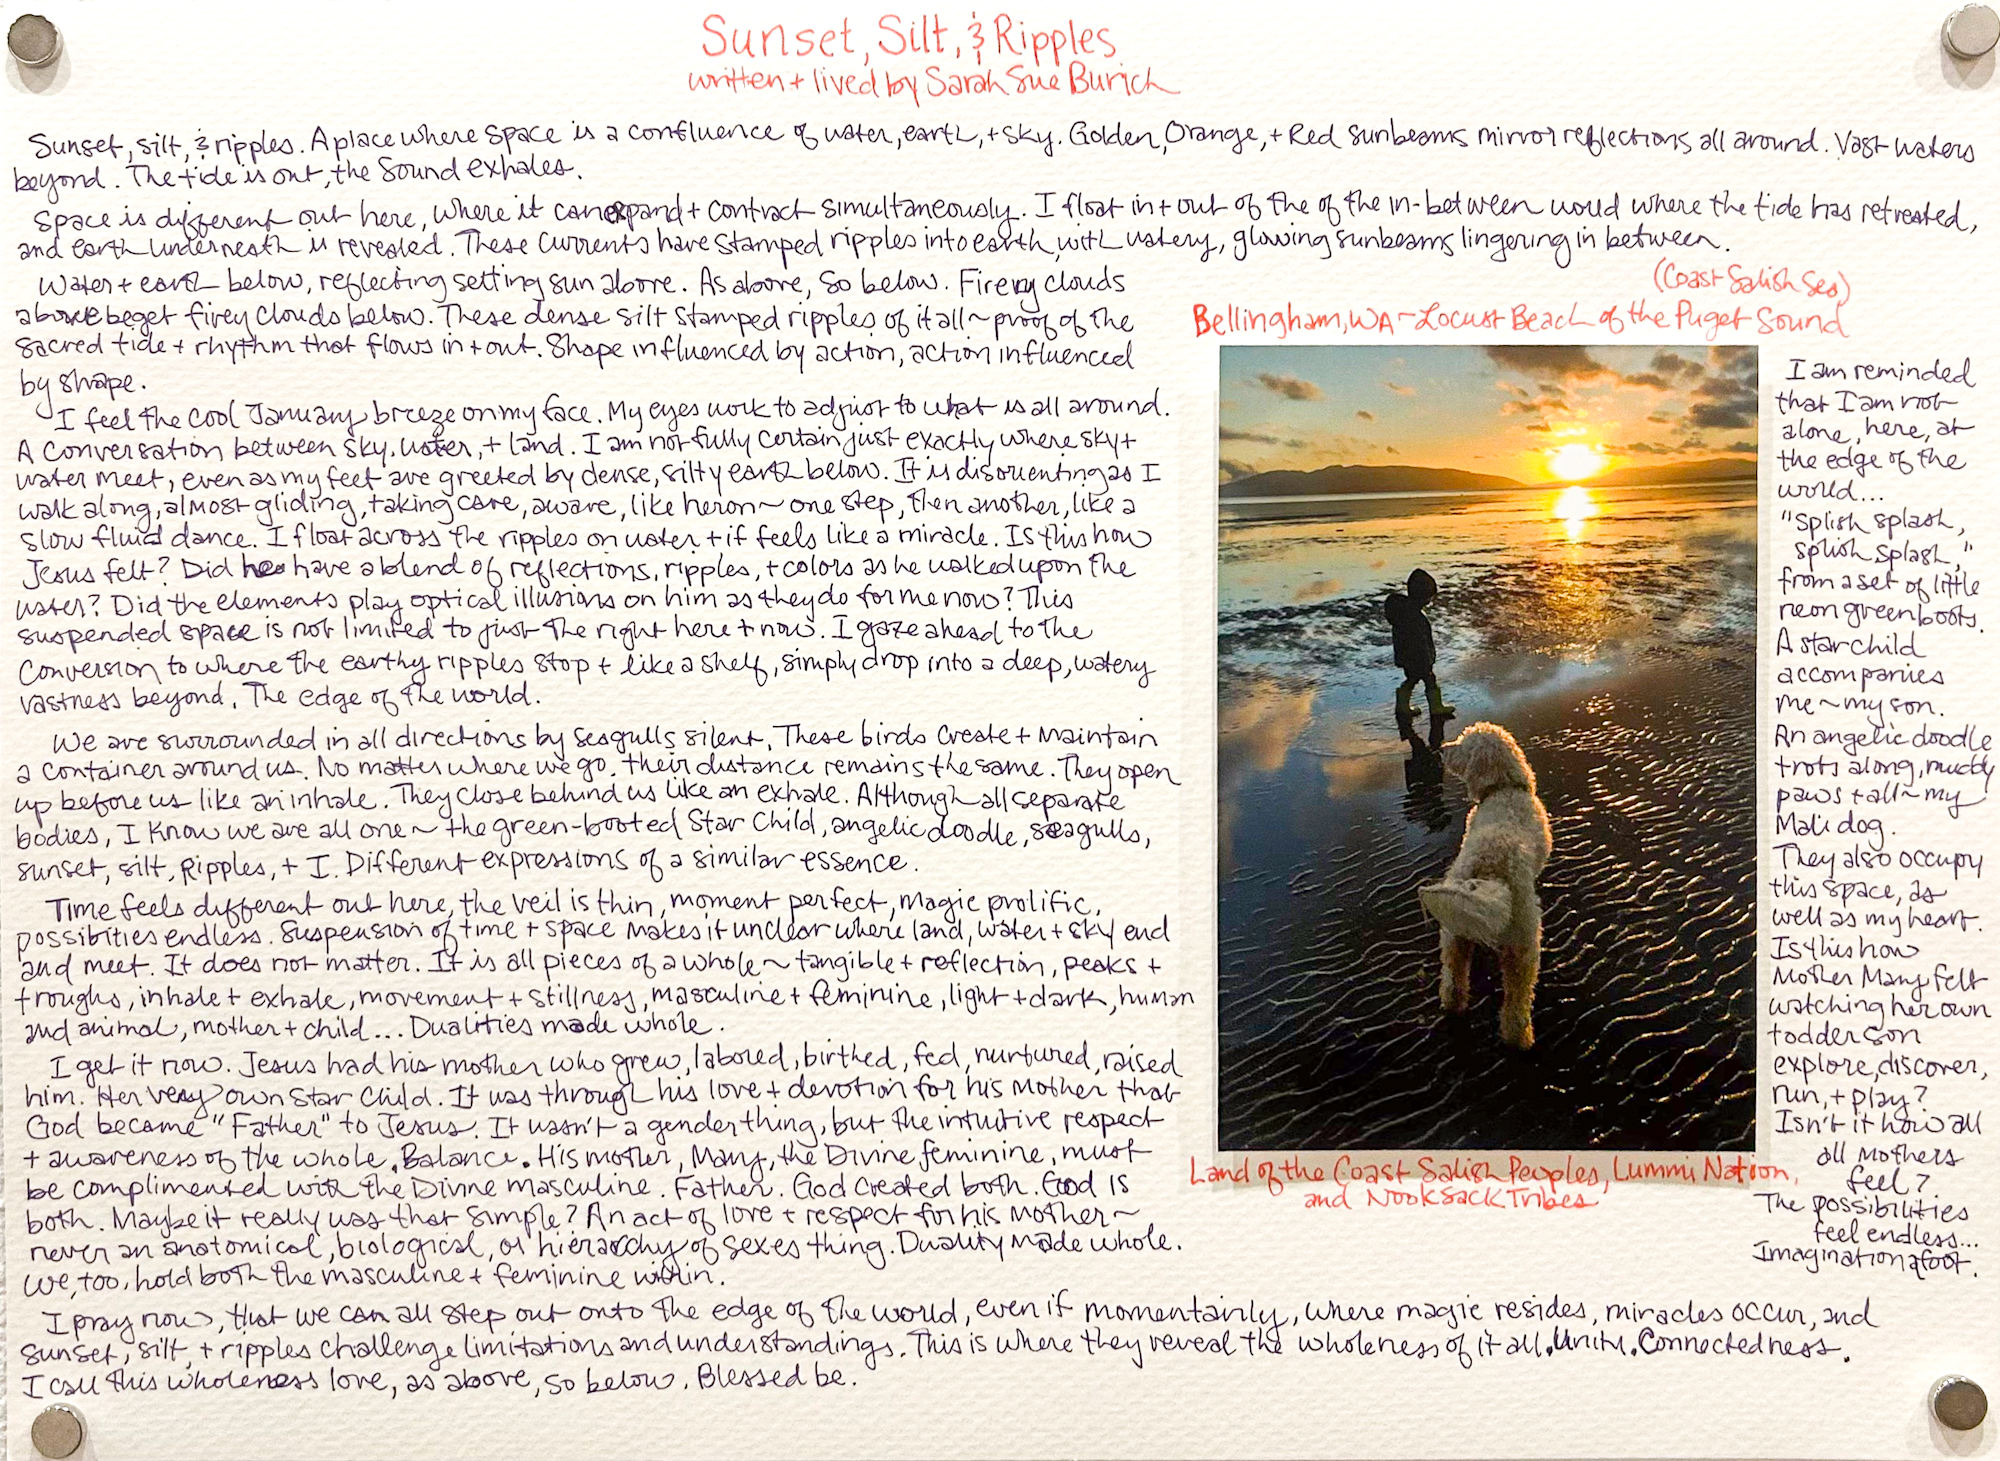 Sunset, Silt, & Ripples
written + lived by Sarah Sue Burich
Sunset, silt, & ripples. A place where space is a confluence of water, earth, + sky. Golden, Orange, + Red sunbeams mirror reflections all around. Vast waters
beyond. The tide is out, the Sound exhales.
Space is different out here, where it can expand + contract simultaneously. I float in + out of the of the in-between world where the tide has retreated,
and earth underneath is revealed. These currents have stamped ripples into earth, with watery, glowing sunbeams lingering in between.
Water + earth below, reflecting setting sun above. As above, so below. Firey clouds
above beget firey clouds below. These dense silt stamped ripples of it all ~ proof of the
sacred tide + rhythm that flows in + out. Shape influenced by action, action influenced
by shape.
I feel the cool January breeze on my face. My eyes work to adjust to what is all around.
A conversation between sky, water, + land. I am not fully certain just exactly where sky +
water meet, even as my feet are greeted by dense, silty earth below. It is disorienting as I
walk along, almost gliding, taking care, aware, like heron ~ one step, then another, like a
slow fluid dance. I float across the ripples on water + it feels like a miracle. Is this how
Jesus felt? Did he have a blend of reflections, ripples, + colors as he walked upon the
water? Did the elements play optical illusions on him as they do for me now? This
suspended space is not limited to just the right here + now. I gaze ahead to the
conversion to where the earthy ripples stop + like a shelf, simply drop into a deep, watery
vastness beyond. The edge of the world.
We are surrounded in all directions by seagulls silent. These birds create + maintain
a container around us. No matter where we go, their distance remains the same. They open
up before us like an inhale. They close behind us like an exhale. Although all separate
bodies, I know we are all one ~ the green-booted Star Child, angelic doodle, seagulls,
sunset, silt, Ripples, + I. Different expressions of a similar essence.
Time feels different out here, the veil is thin, moment perfect, magic prolific,
possibities endless. Suspension of time + space makes it unclear where land, water + sky end
and meet. It does not matter. It is all pieces of a whole ~ tangible + reflection, peaks +
troughs, inhale + exhale, movement + stillness, masculine + feminine, light + dark, human
and animal, mother + child... Dualities made whole.
I get it now. Jesus had his mother who grew, labored, birthed, fed, nurtured, raised
him. Her very own Star Child. It was through his love + devotion for his Mother that
God became "Father" to Jesus. It wasn't a gender thing, but the intuitive respect
+ awareness of the whole. Balance. His mother, Mary, the Divine feminine, must
be complimented with the Divine masculine. Father. God created both. God is
both. Maybe it really was that simple? An act of love + respect for his Mother ~
never an anatomical, biological, or hierarchy of sexes thing. Duality made whole.
We, too, hold both the masculine + feminine within.
I pray now, that we can all step out onto the edge of the world, even if momentairily, where magic resides, miracles occur, and
sunset, silt, + ripples challenge limitations and understandings. This is where they reveal the wholeness of it all. Unity. Connectedness.
I call this wholeness love, as above, so below. Blessed be.
(Coast Salish Sea)
Bellingham, WA ~ Locust Beach of the Puget Sound
Land of the Coast Salish Peoples, Lummi Nation,
and Nooksack Tribes
I am reminded
that I am not
alone, here, at
the edge of the
world...
"Splish splash,
splish splash,"
from a set of little
neon green boots.
A star child
accompanies
me ~ my son.
An angelic doodle
trots along, muddy
paws + all ~ my
Mali dog.
They also occupy
this space, as
well as my heart.
Is this how
Mother Mary felt
watching her own
todder son
explore, discover,
run, + play?
Isn't it how all
all Mothers
feel?
The possibilities
feel endless...
Imagination afoot.